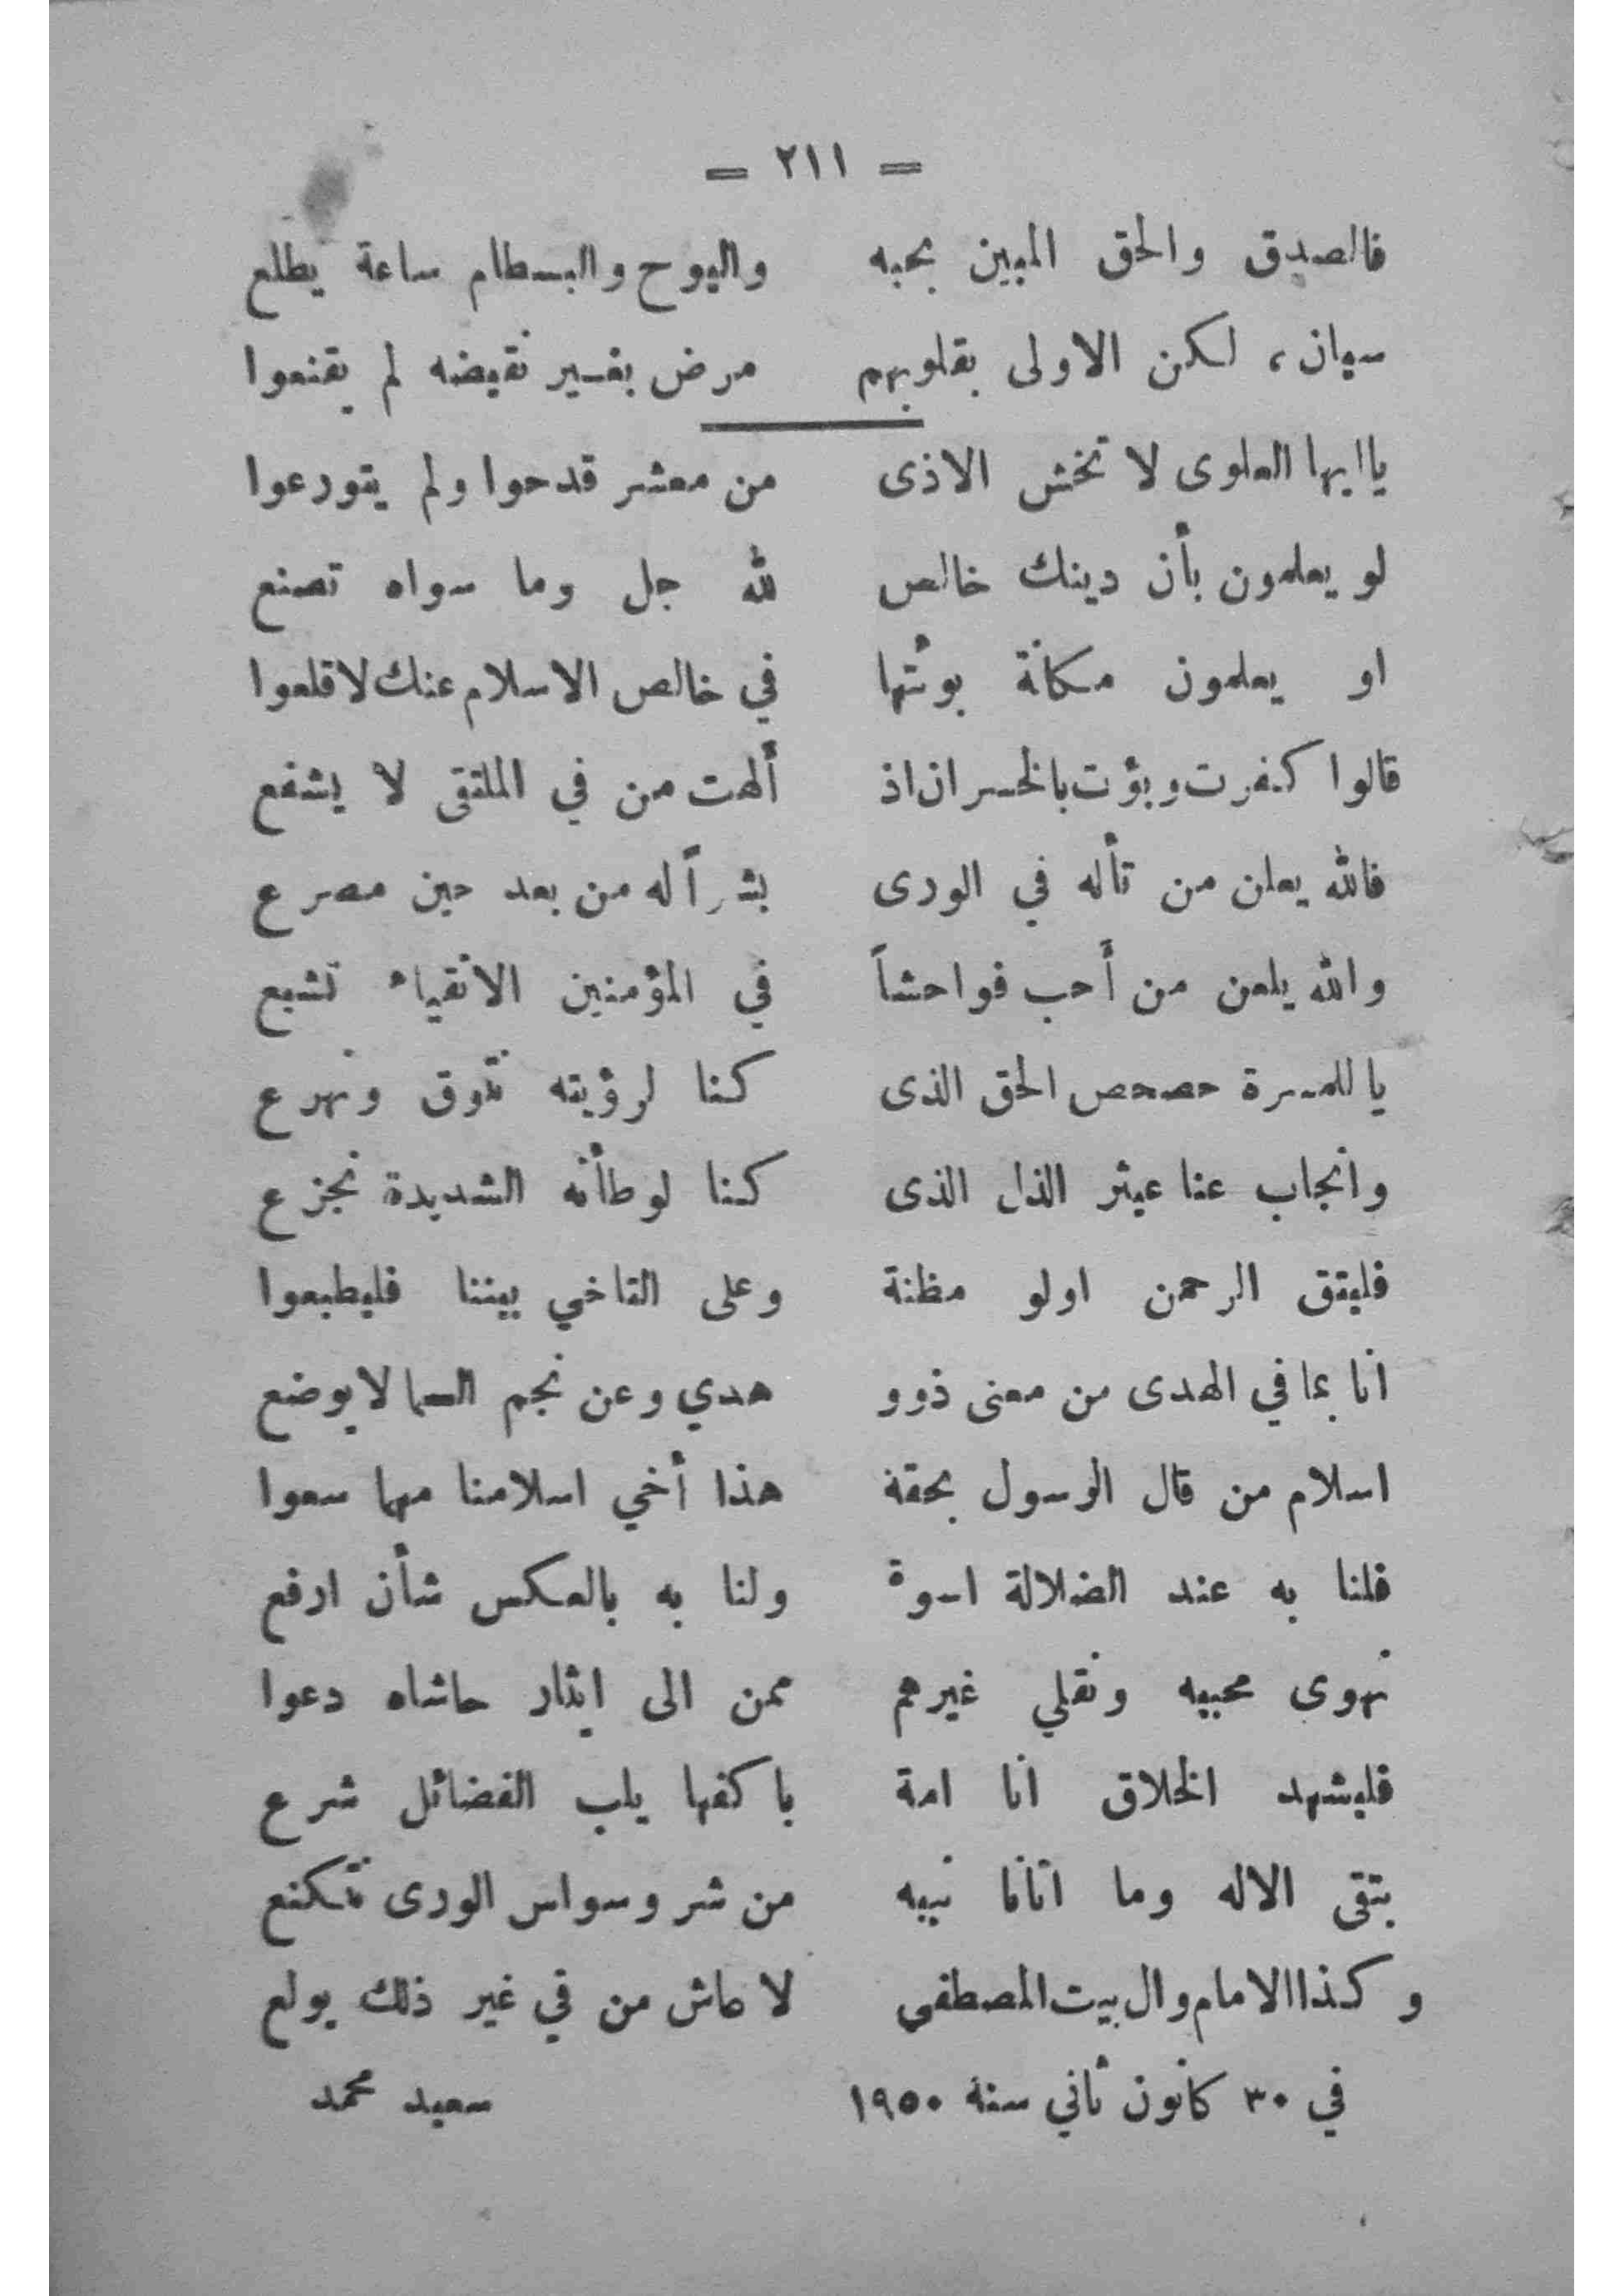 = ٢١١ =
فالصدق والحق المبين بحبه واليوح والبسطام ساعة يطلع
سيان ، لكن الاولى بقلوبهم مرض بغير نقيضه لم يقنعوا
يا ايها العلوى لا تخش الاذى من معشر قدحوا ولم يتورعوا
لو يعلمون بأن دينك خالص لله جل وما سواه تصنع
او يعلمون مكانة بوئتها في خالص الاسلام عنك لاقلعوا
قالوا كفرت وبؤت بالخسران اذ ألهت من في الملتقى لا يشفع
فالله يعلن من تأله في الورى بشراً له من بعد حين مصرع
والله يلعن من أحب فواحشاً في المؤمنين الاتقياء تشيع
يا للمسرة حصحص الحق الذى كنا لرؤيته نتوق ونهرع
وانجاب عنا عيثر الذل الذى كنا لوطأته الشديدة نجزع
فليتق الرحمن اولو مظنة وعلى التاخي بيننا فليطبعوا
انا بما في الهدى من معنى ذوو هدي وعن نجم السما لا يوضع
اسلام من قال الرسول بحقة هذا أخي اسلامنا مهما سعوا
فلنا به عند الضلالة اسوة ولنا به بالعكس شأن ارفع
نهوى محبيه ونقلي غيرهم ممن الى ايثار حاشاه دعوا
فليشهد الخلاق انا امة باكفها يلب الفضائل شرع
بتقى الاله وما اتانا نبيه من شر وسواس الورى نتكنع
وكذا الامام وال بيت المصطفى لا عاش من في غير ذلك يولع
في ٣٠ كانون ثاني سنة ١٩٥٠ سعيد محمد